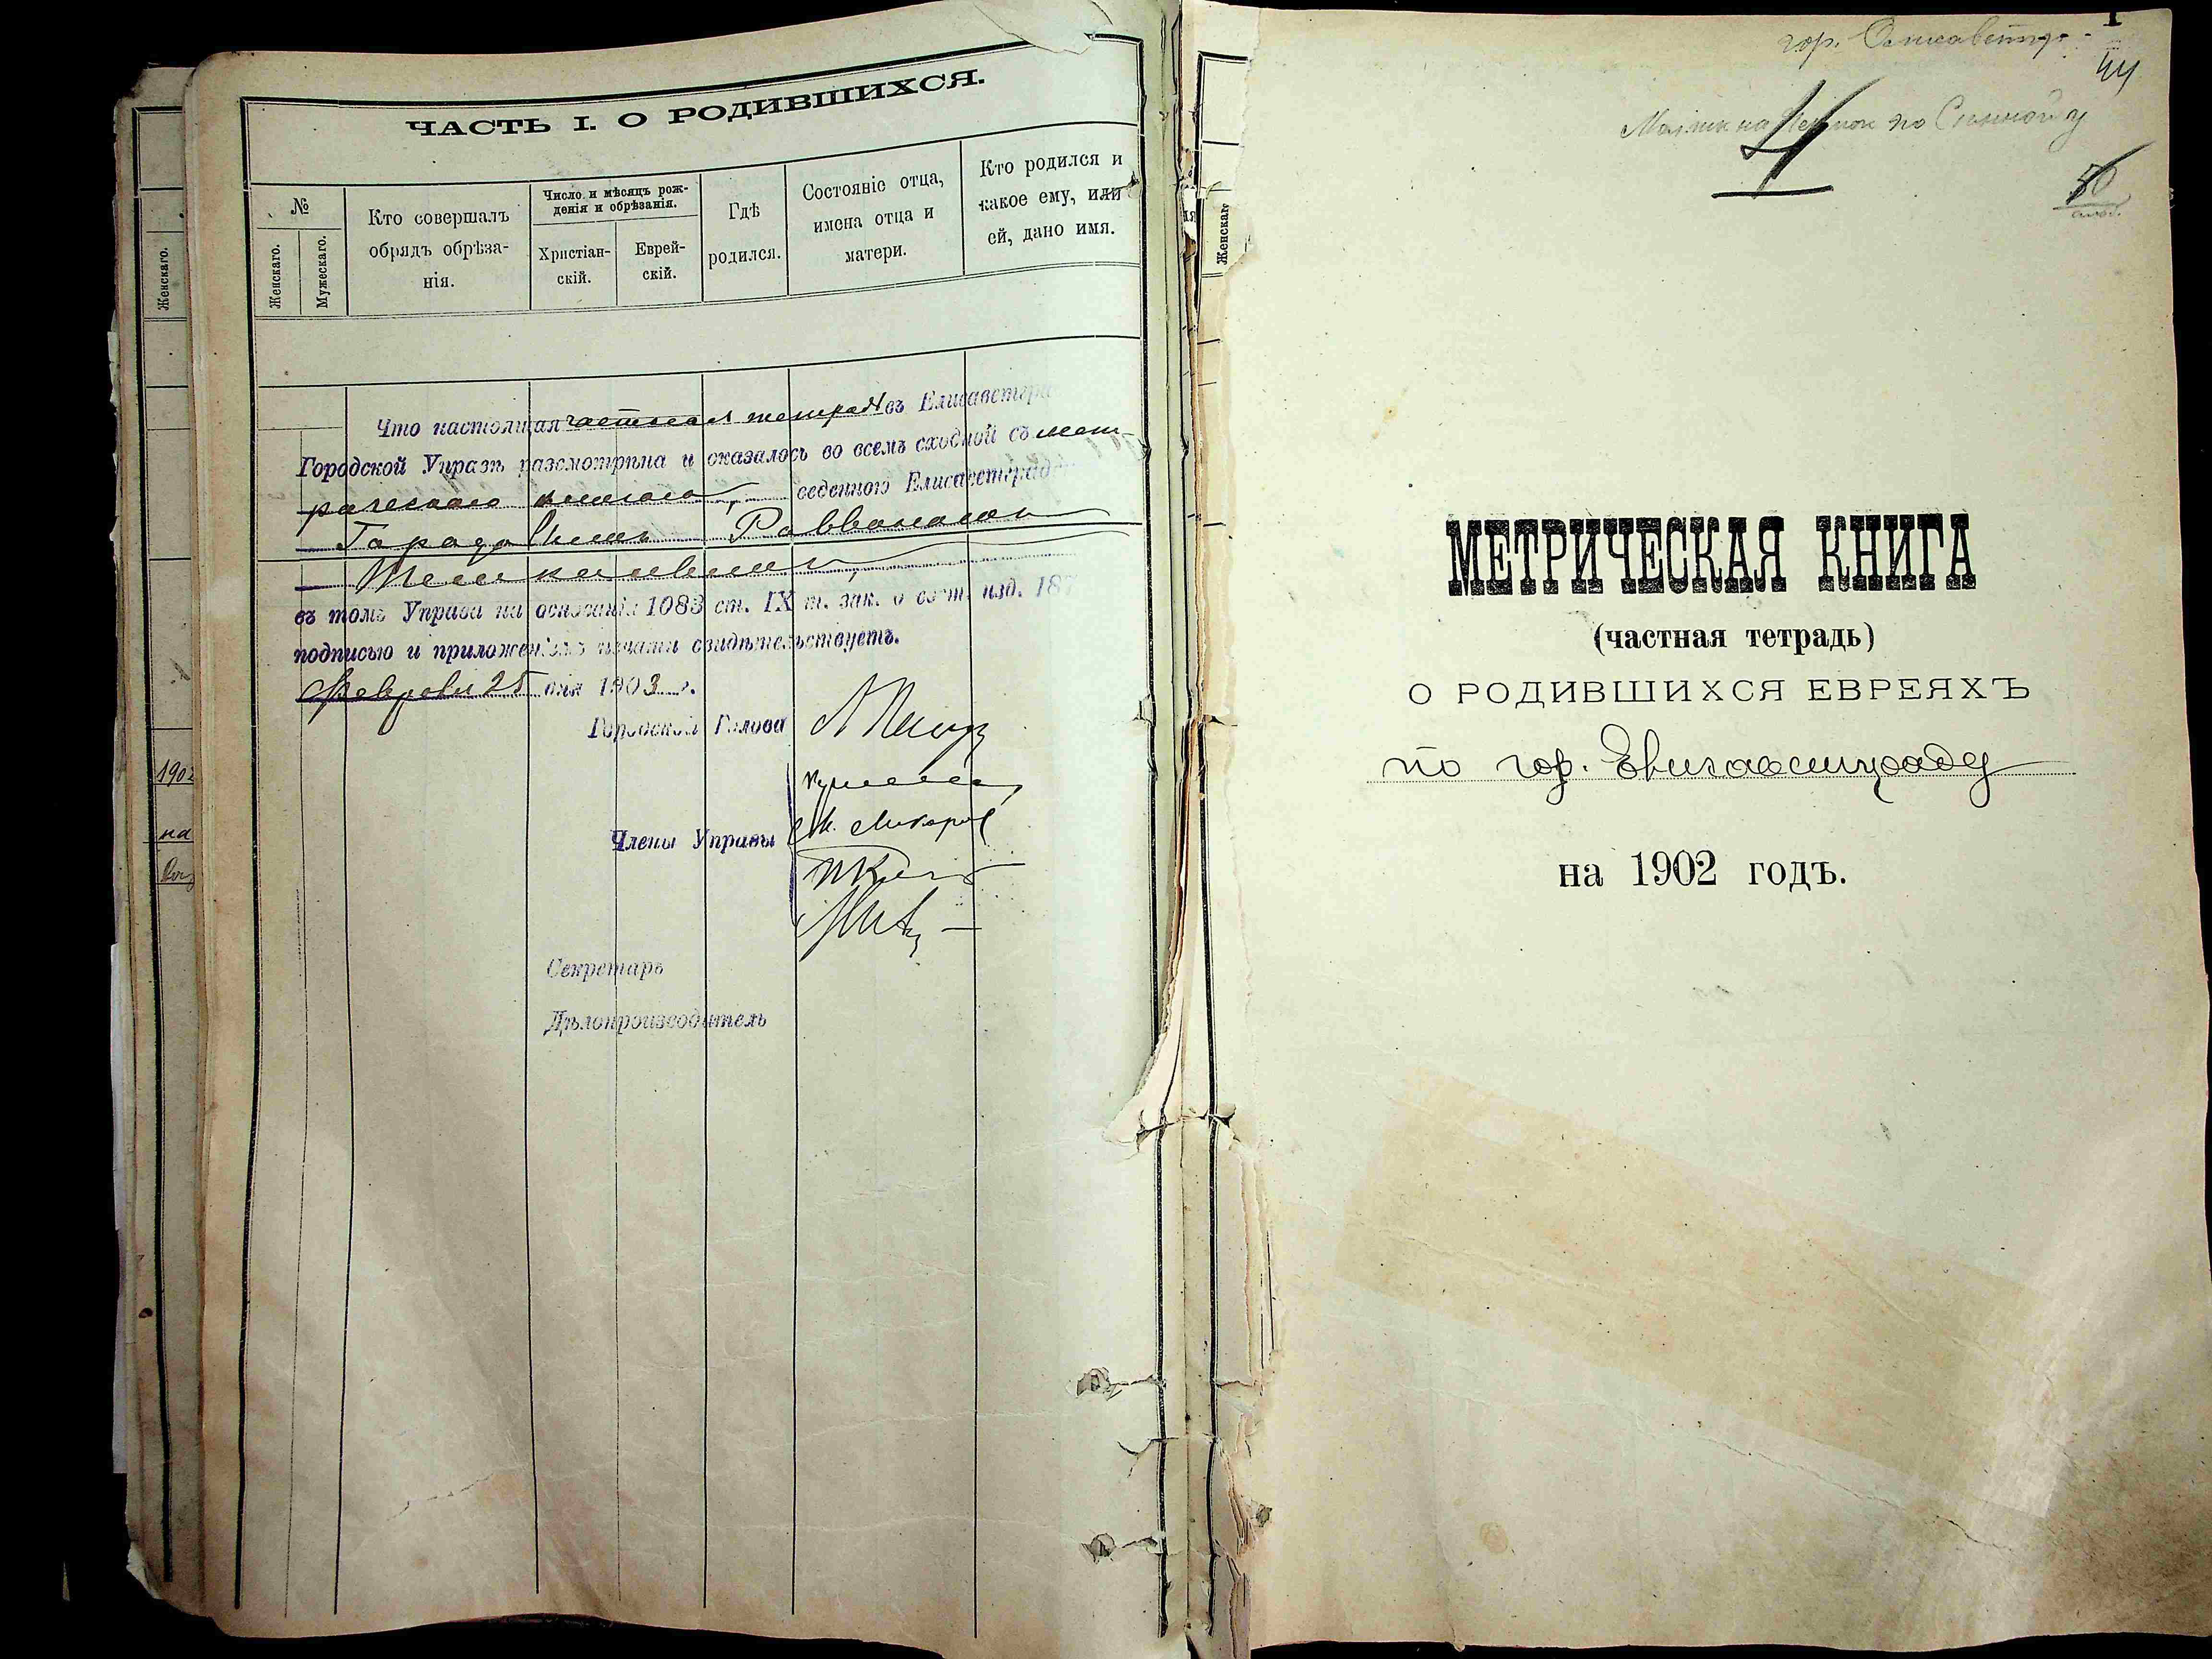 ЧАСТЬ I. О РОДИВШИХСЯ.
№
Женскаго.
Мужескаго.
Кто совершалъ
обрядъ обрѣза-
нія.
Число и мѣсяцъ рож-
денія и обрѣзанія.
Христіан-
скій.
Еврей-
скій.
Гдѣ
родился.
Состояніе отца,
имена отца и
матери.
Кто родился и
какое ему, или
ей, дано имя.
Что настоящая частная тетрадь въ Елисаветгра
Городской Управѣ разсмотрѣна и оказалось во всемъ сходной съ мет-
рическою книгою, веденною Елисаветград
Городскимъ Раввиномъ
въ томъ Управа на основаніи 1083 ст. IX т. зак. о сост. изд. 187
подписью и приложеніемъ печати свидѣтельствуетъ.
Февраля 25 дня 1903 г.
Городской Голова
Члены Управы
М. Макаров
Секретарь
Дѣлопроизводитель
Женскаго.
1902
на
Женскаг
гор. Елисаветгр.
44
4
по Сенной у
50
МЕТРИЧЕСКАЯ КНИГА
(частная тетрадь)
О РОДИВШИХСЯ ЕВРЕЯХЪ
по гор. Елисаветграду
на 1902 годъ.